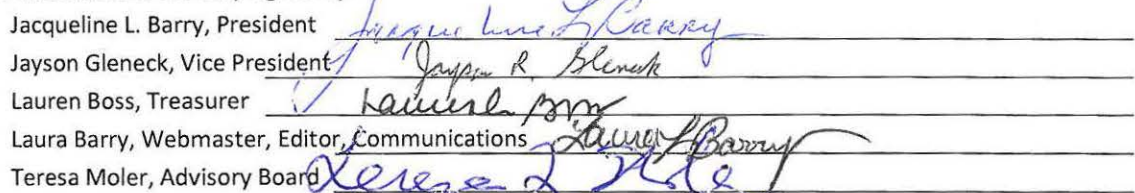 Jacqueline L. Barry, President Jacqueline L Barry
Jayson Gleneck, Vice President Jayson R. Gleneck
Lauren Boss, Treasurer Lauren Boss
Laura Barry, Webmaster, Editor, Communications Laura L Barry
Teresa Moler, Advisory Board Teresa L Moler